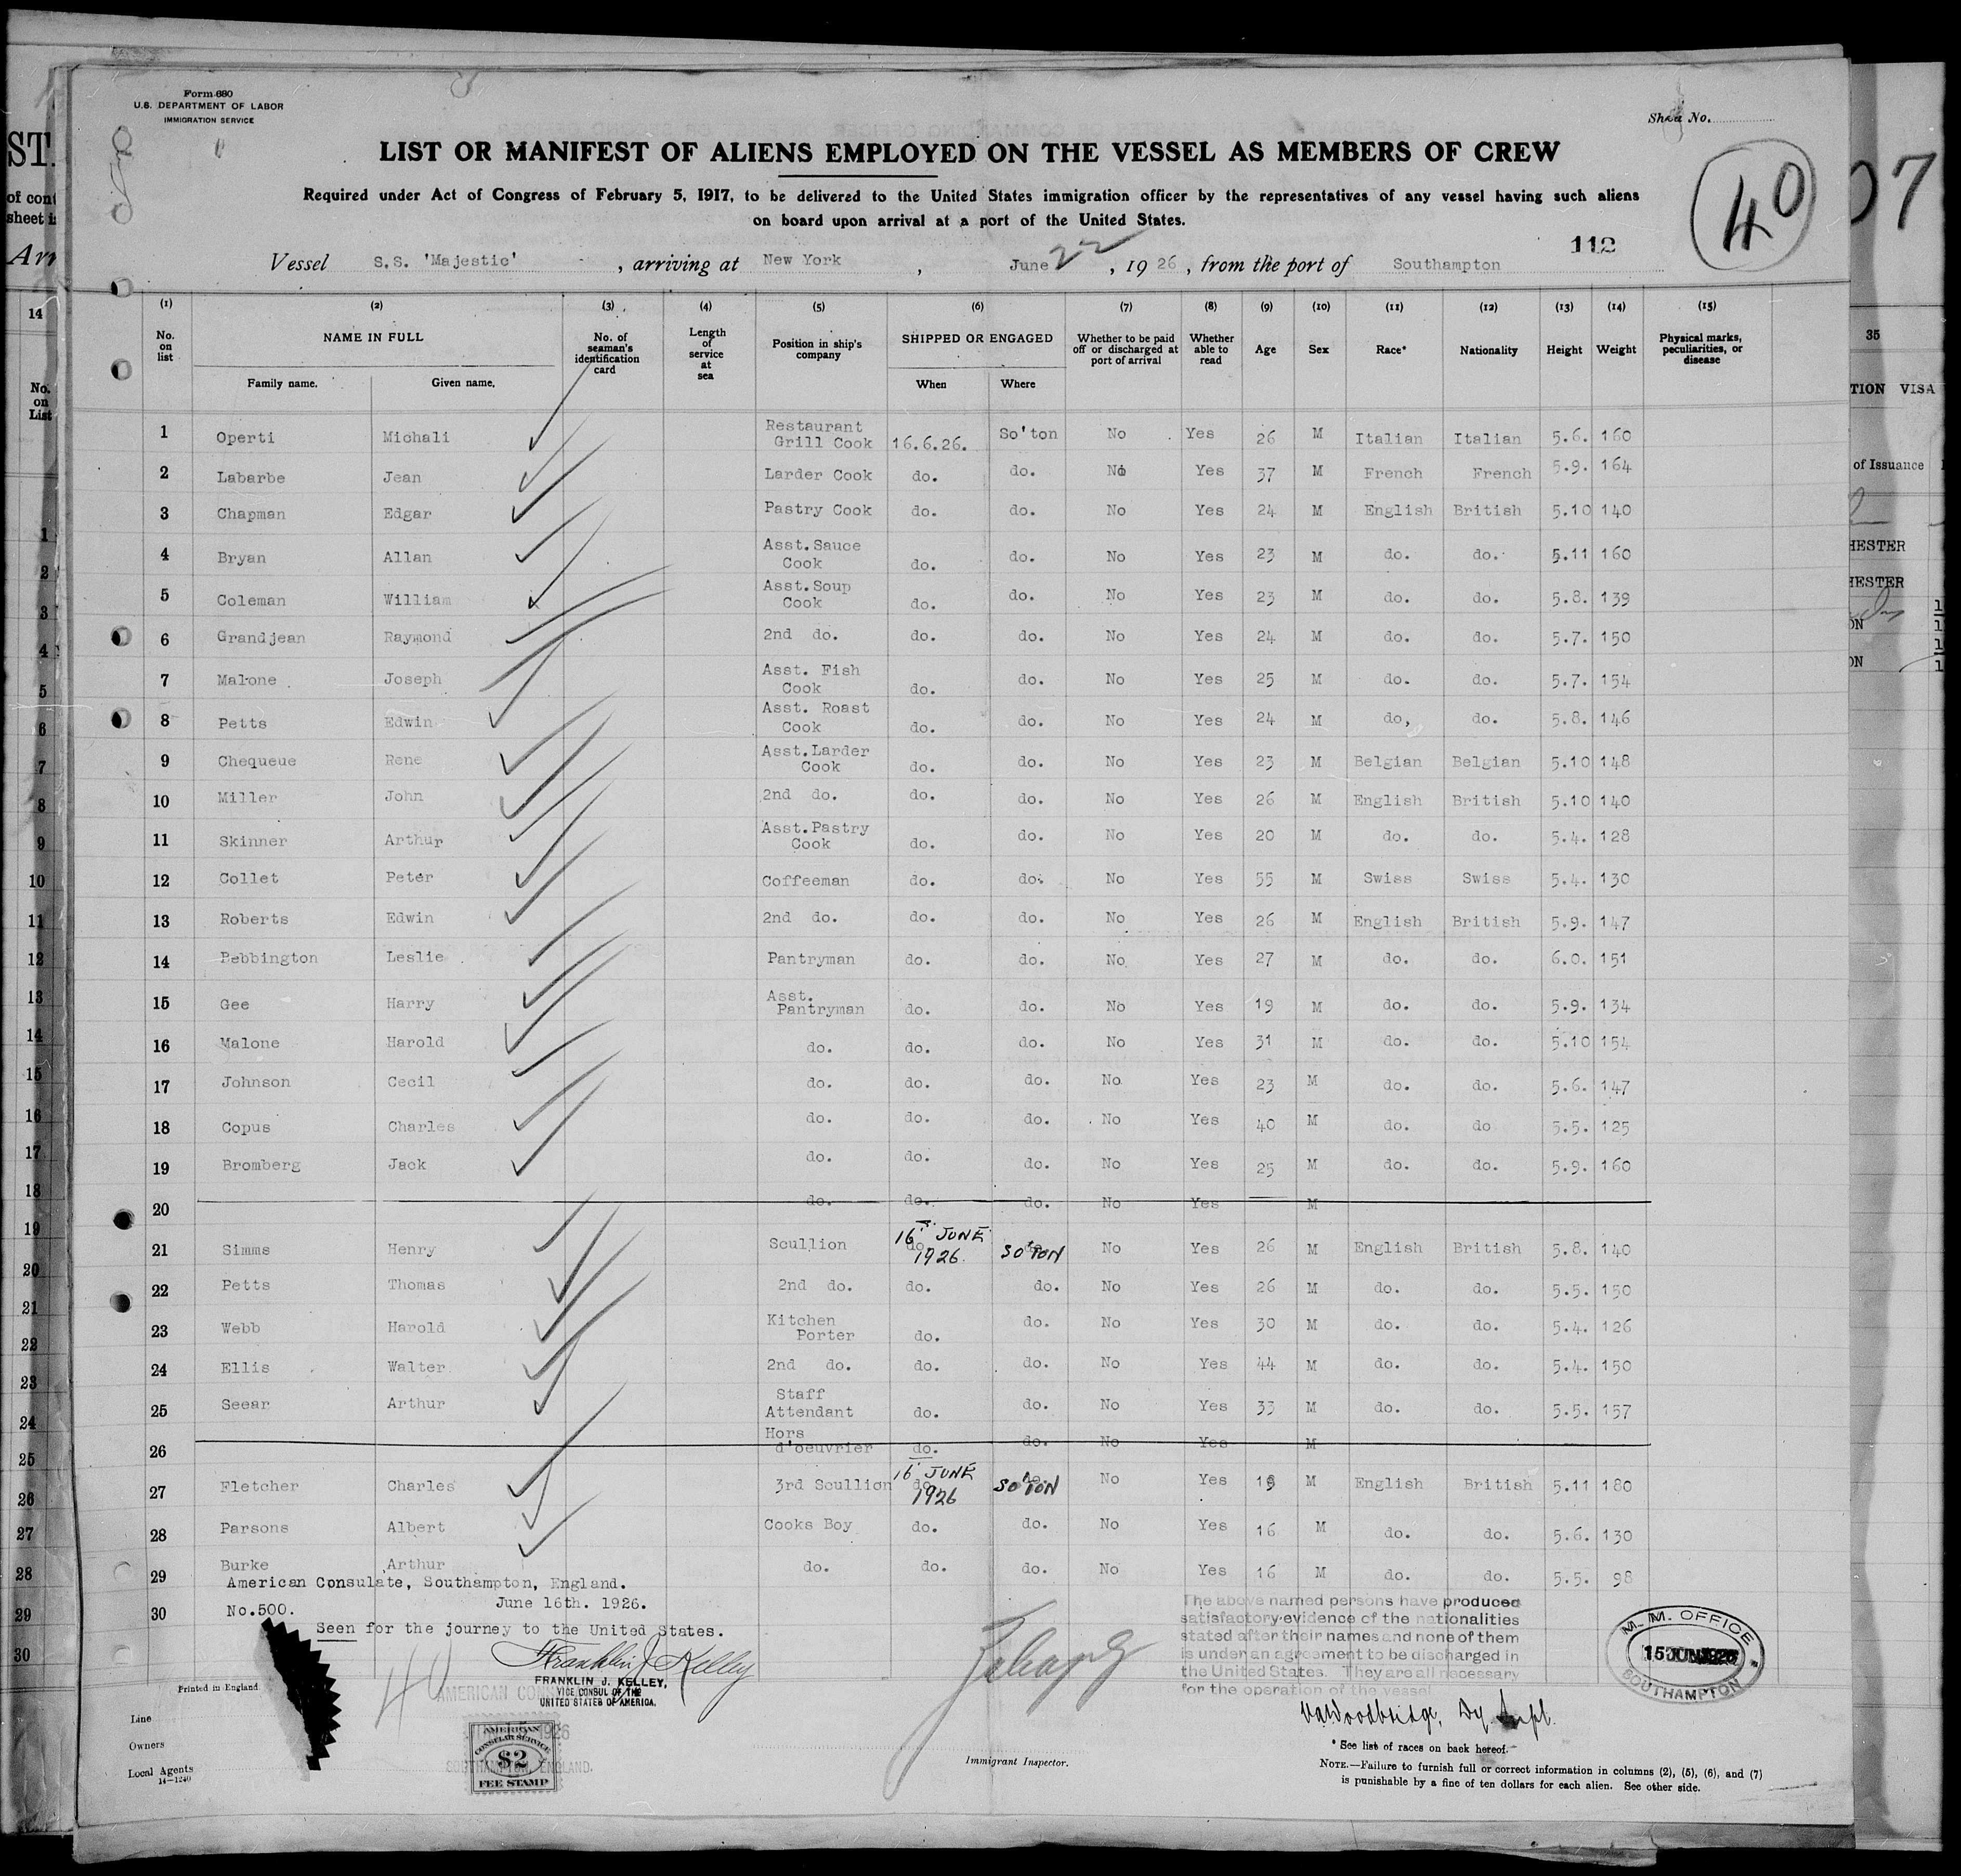 Form 680
U.S. DEPARTMENT OF LABOR
IMMIGRATION SERVICE
Sheet No.
LIST OR MANIFEST OF ALIENS EMPLOYED ON THE VESSEL AS MEMBERS OF CREW
40
Required under Act of Congress of February 5, 1917, to be delivered to the United States immigration officer by the representatives of any vessel having such aliens
on board upon arrival at a port of the United States.
112
Vessel S.S. 'Majestic' , arriving at New York , June 22 , 1926 , from the port of Southampton
(1) (2) (3) (4) (5) (6) (7) (8) (9) (10) (11) (12) (13) (14) (15)
No. on list NAME IN FULL Family name. Given name. No. of seaman's identification card Length of service at sea Position in ship's company SHIPPED OR ENGAGED When Where Whether to be paid off or discharged at port of arrival Whether able to read Age Sex Race* Nationality Height Weight Physical marks, peculiarities, or disease
1 Operti Michali Restaurant Grill Cook 16.6.26. So'ton No Yes 26 M Italian Italian 5.6. 160
2 Labarbe Jean Larder Cook do. do. No Yes 37 M French French 5.9. 164
3 Chapman Edgar Pastry Cook do. do. No Yes 24 M English British 5.10 140
4 Bryan Allan Asst.Sauce Cook do. do. No Yes 23 M do. do. 5.11 160
5 Coleman William Asst.Soup Cook do. do. No Yes 23 M do. do. 5.8. 139
6 Grandjean Raymond 2nd do. do. do. No Yes 24 M do. do. 5.7. 150
7 Malone Joseph Asst. Fish Cook do. do. No Yes 25 M do. do. 5.7. 154
8 Petts Edwin Asst. Roast Cook do. do. No Yes 24 M do, do. 5.8. 146
9 Chequeue Rene Asst.Larder Cook do. do. No Yes 23 M Belgian Belgian 5.10 148
10 Miller John 2nd do. do. do. No Yes 26 M English British 5.10 140
11 Skinner Arthur Asst.Pastry Cook do. do. No Yes 20 M do. do. 5.4. 128
12 Collet Peter Coffeeman do. do. No Yes 55 M Swiss Swiss 5.4. 130
13 Roberts Edwin 2nd do. do. do. No Yes 26 M English British 5.9. 147
14 Bebbington Leslie Pantryman do. do. No Yes 27 M do. do. 6.0. 151
15 Gee Harry Asst. Pantryman do. do. No Yes 19 M do. do. 5.9. 134
16 Malone Harold do. do. do. No Yes 31 M do. do. 5.10 154
17 Johnson Cecil do. do. do. No Yes 23 M do. do. 5.6. 147
18 Copus Charles do. do. do. No Yes 40 M do. do 5.5. 125
19 Bromberg Jack do. do. do. No Yes 25 M do. do. 5.9. 160
20 do. do. do. No Yes M
21 Simms Henry Scullion 16 JUNE 1926 SO'TON No Yes 26 M English British 5.8. 140
22 Petts Thomas 2nd do. do. do. No Yes 26 M do. do. 5.5. 150
23 Webb Harold Kitchen Porter do. do. No Yes 30 M do. do. 5.4. 126
24 Ellis Walter 2nd do. do. do. No Yes 44 M do. do. 5.4. 150
25 Seear Arthur Staff Attendant do. do. No Yes 33 M do. do. 5.5. 157
26 Hors d'oeuvrier do. do. No Yes M
27 Fletcher Charles 3rd Scullion 16 JUNE 1926 SO'TON No Yes 19 M English British 5.11 180
28 Parsons Albert Cooks Boy do. do. No Yes 16 M do. do. 5.6. 130
29 Burke Arthur do. do. do. No Yes 16 M do. do. 5.5. 98
30
American Consulate, Southampton, England.
June 16th. 1926.
No.500.
Seen for the journey to the United States.
Franklin J Kelley
FRANKLIN J. KELLEY,
VICE CONSUL OF THE
UNITED STATES OF AMERICA.
40
AMERICAN CONSULAR SERVICE
$2
FEE STAMP
SOUTHAMPTON, ENGLAND.
The above named persons have produced
satisfactory evidence of the nationalities
stated after their names and none of them
is under an agreement to be discharged in
the United States. They are all necessary
for the operation of the vessel
M. M. OFFICE
15 JUN 1926
SOUTHAMPTON
Printed in England
Line
Owners
Local Agents
14—1240
Immigrant Inspector.
* See list of races on back hereof.
NOTE.—Failure to furnish full or correct information in columns (2), (5), (6), and (7)
is punishable by a fine of ten dollars for each alien. See other side.
ST.
of cont
sheet i
Arr
14
No. on List
07
35
TION VISA
of Issuance
HESTER
HESTER
ON
ON